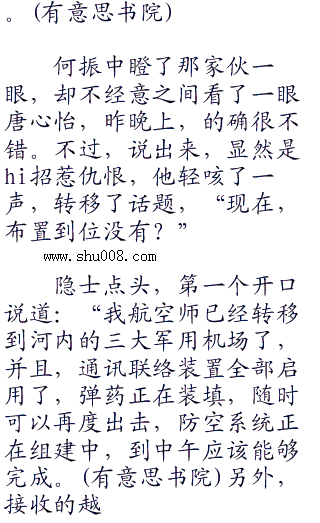 。(有意思书院)
何振中瞪了那家伙一
眼，却不经意之间看了一眼
唐心怡，昨晚上，的确很不
错。不过，说出来，显然是
hi招惹仇恨，他轻咳了一
声，转移了话题，“现在，
布置到位没有？”
www.shu008.com
隐士点头，第一个开口
说道：“我航空师已经转移
到河内的三大军用机场了，
并且，通讯联络装置全部启
用了，弹药正在装填，随时
可以再度出击，防空系统正
在组建中，到中午应该能够
完成。(有意思书院)另外，
接收的越